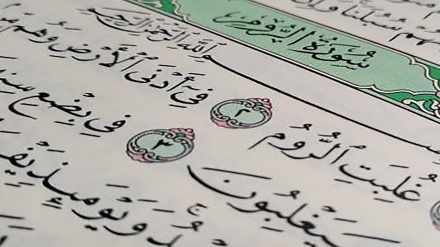 سُورَةُ الرُّومِ
اللَّهِ الرَّحْمَٰنِ الرَّحِيمِ
غُلِبَتِ الرُّومُ ٢ فِي أَدْنَى الْأَرْضِ وَهُم
سَيَغْلِبُونَ ٣ فِي بِضْعِ
وَيَوْمَئِذٍ